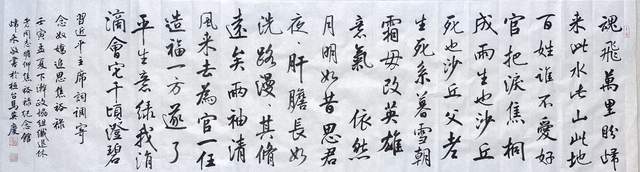 魂飛萬里盼歸
来此水此山此地
百姓誰不愛好
官把淚焦桐
成雨生也沙丘
死也沙丘父老
生死系暮雪朝
霜毋改英雄
意氣 依然
月明如昔思君
夜々肝膽長如
洗路漫々其脩
遠矣兩袖清
風来去為官一任
造福一方遂了
平生意緑我涓
滴會它千頃澄碧
習近平主席詞調寄
念奴嬌追思焦裕禄
壬寅孟夏下澣政協組織退休
老同志瞻仰焦裕禄紀念館
歸来敬書於桓台馬英慶